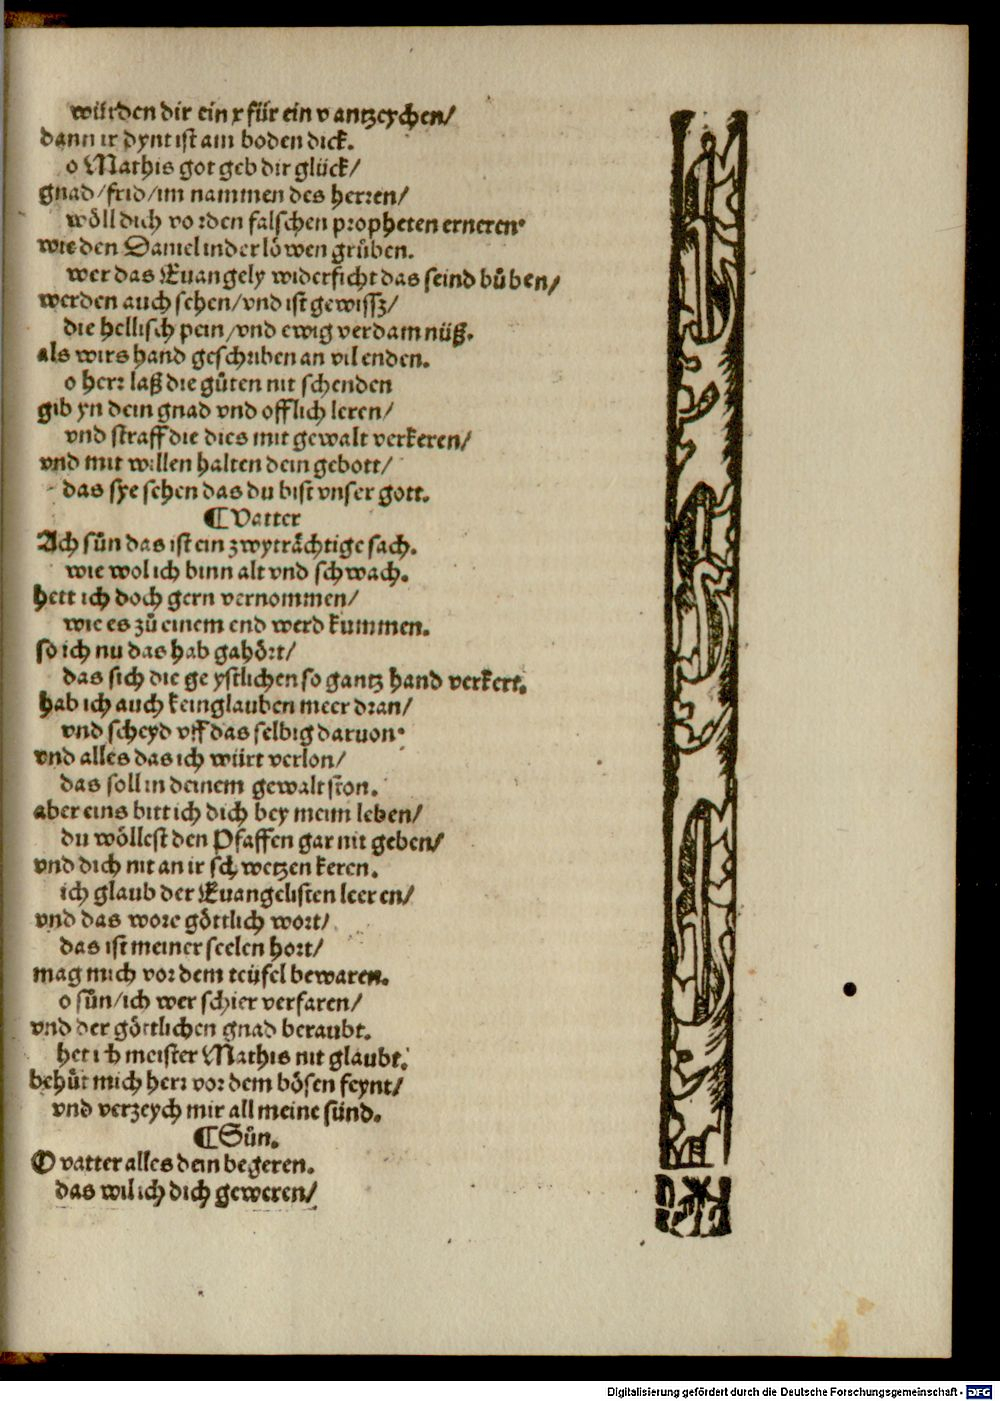 würden dir ein x für ein v antzeychen/
dann ir dynt ist am boden dick.
o Mathis got geb dir glück/
gnad/frid/im nammen des herren/
wöll dich vor den falschen propheten erneren.
wie den Daniel in der löwen grůben.
wer das Euangely widerficht das seind bůben/
werden auch sehen/vnd ist gewissz/
die hellisch pein/vnd ewig verdamnüß.
als wirs hand geschriben an vil enden.
o herr laß die gůten nit schenden
gib yn dein gnad vnd offlich leren/
vnd straff die dies mit gewalt verkeren/
vnd mit willen halten dein gebott/
das sye sehen das du bist vnser gott.
¶Vatter
Ach sůn das ist ein zwyträchtige sach.
wie wol ich binn alt vnd schwach.
hett ich doch gern vernommen/
wie es zů einem end werd kummen.
so ich nu das hab gahört/
das sich die geystlichen so gantz hand verkert.
hab ich auch kein glauben meer dran/
vnd scheyd vff das selbig daruon.
vnd alles das ich würt verlon/
das soll in deinem gewalt ston.
aber eins bitt ich dich bey meim leben/
du wöllest den Pfaffen gar nit geben/
vnd dich nit an ir schwetzen keren.
ich glaub der Euangelisten leeren/
vnd das wore göttlich wort/
das ist meiner seelen hort/
mag mich vor dem teüfel bewaren.
o sůn/ich wer schier verfaren/
vnd der göttlichen gnad beraubt.
het ich meister Mathis nit glaubt.
behůt mich herr vor dem bösen feynt/
vnd verzeych mir all meine sünd.
¶Sůn.
O vatter alles dein begeren.
das wil ich dich geweren/
Digitalisierung gefördert durch die Deutsche Forschungsgemeinschaft - DFG